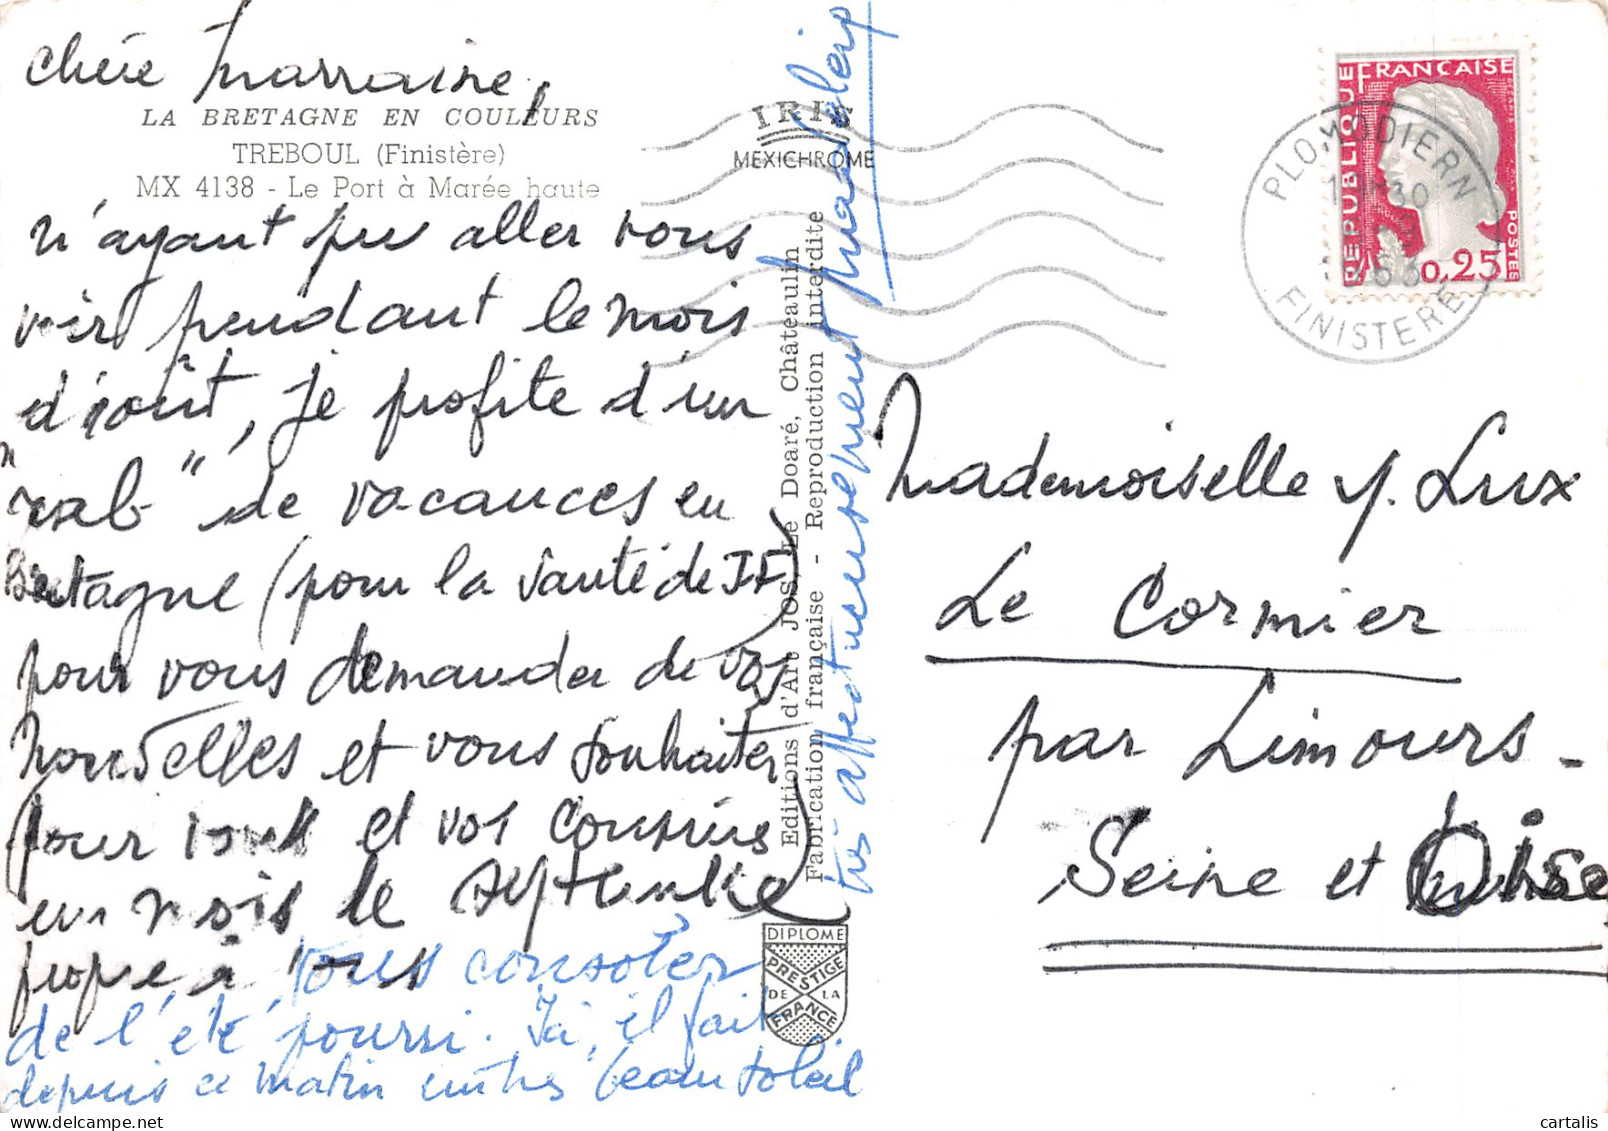 Chère Marraine,
LA BRETAGNE EN COULEURS
TREBOUL (Finistère)
MX 4138 - Le Port à Marée haute
n'ayant pu aller vous
voir pendant le mois
d'août, je profite d'un
"rab" de vacances en
Bretagne (pour la santé de JF)
pour vous demander de vos
nouvelles et vous souhaiter
(pour vous et vos cousines)
un mois de septembre
propre à vous consoler
de l'été pourri. Ici, il fait
depuis ce matin un très beau soleil
très affectueusement Madeleine
IRIS
MEXICHROME
Editions d'Art JOS Le Doaré, Châteaulin
Fabrication française - Reproduction interdite
DIPLOME
PRESTIGE
DE LA
FRANCE
REPUBLIQUE FRANÇAISE
POSTES
0,25
PLOMODIERN
FINISTERE
Mademoiselle y. Lux
Le Cormier
par Limours -
Seine et Oise
cartalis sur www.delcampe.net